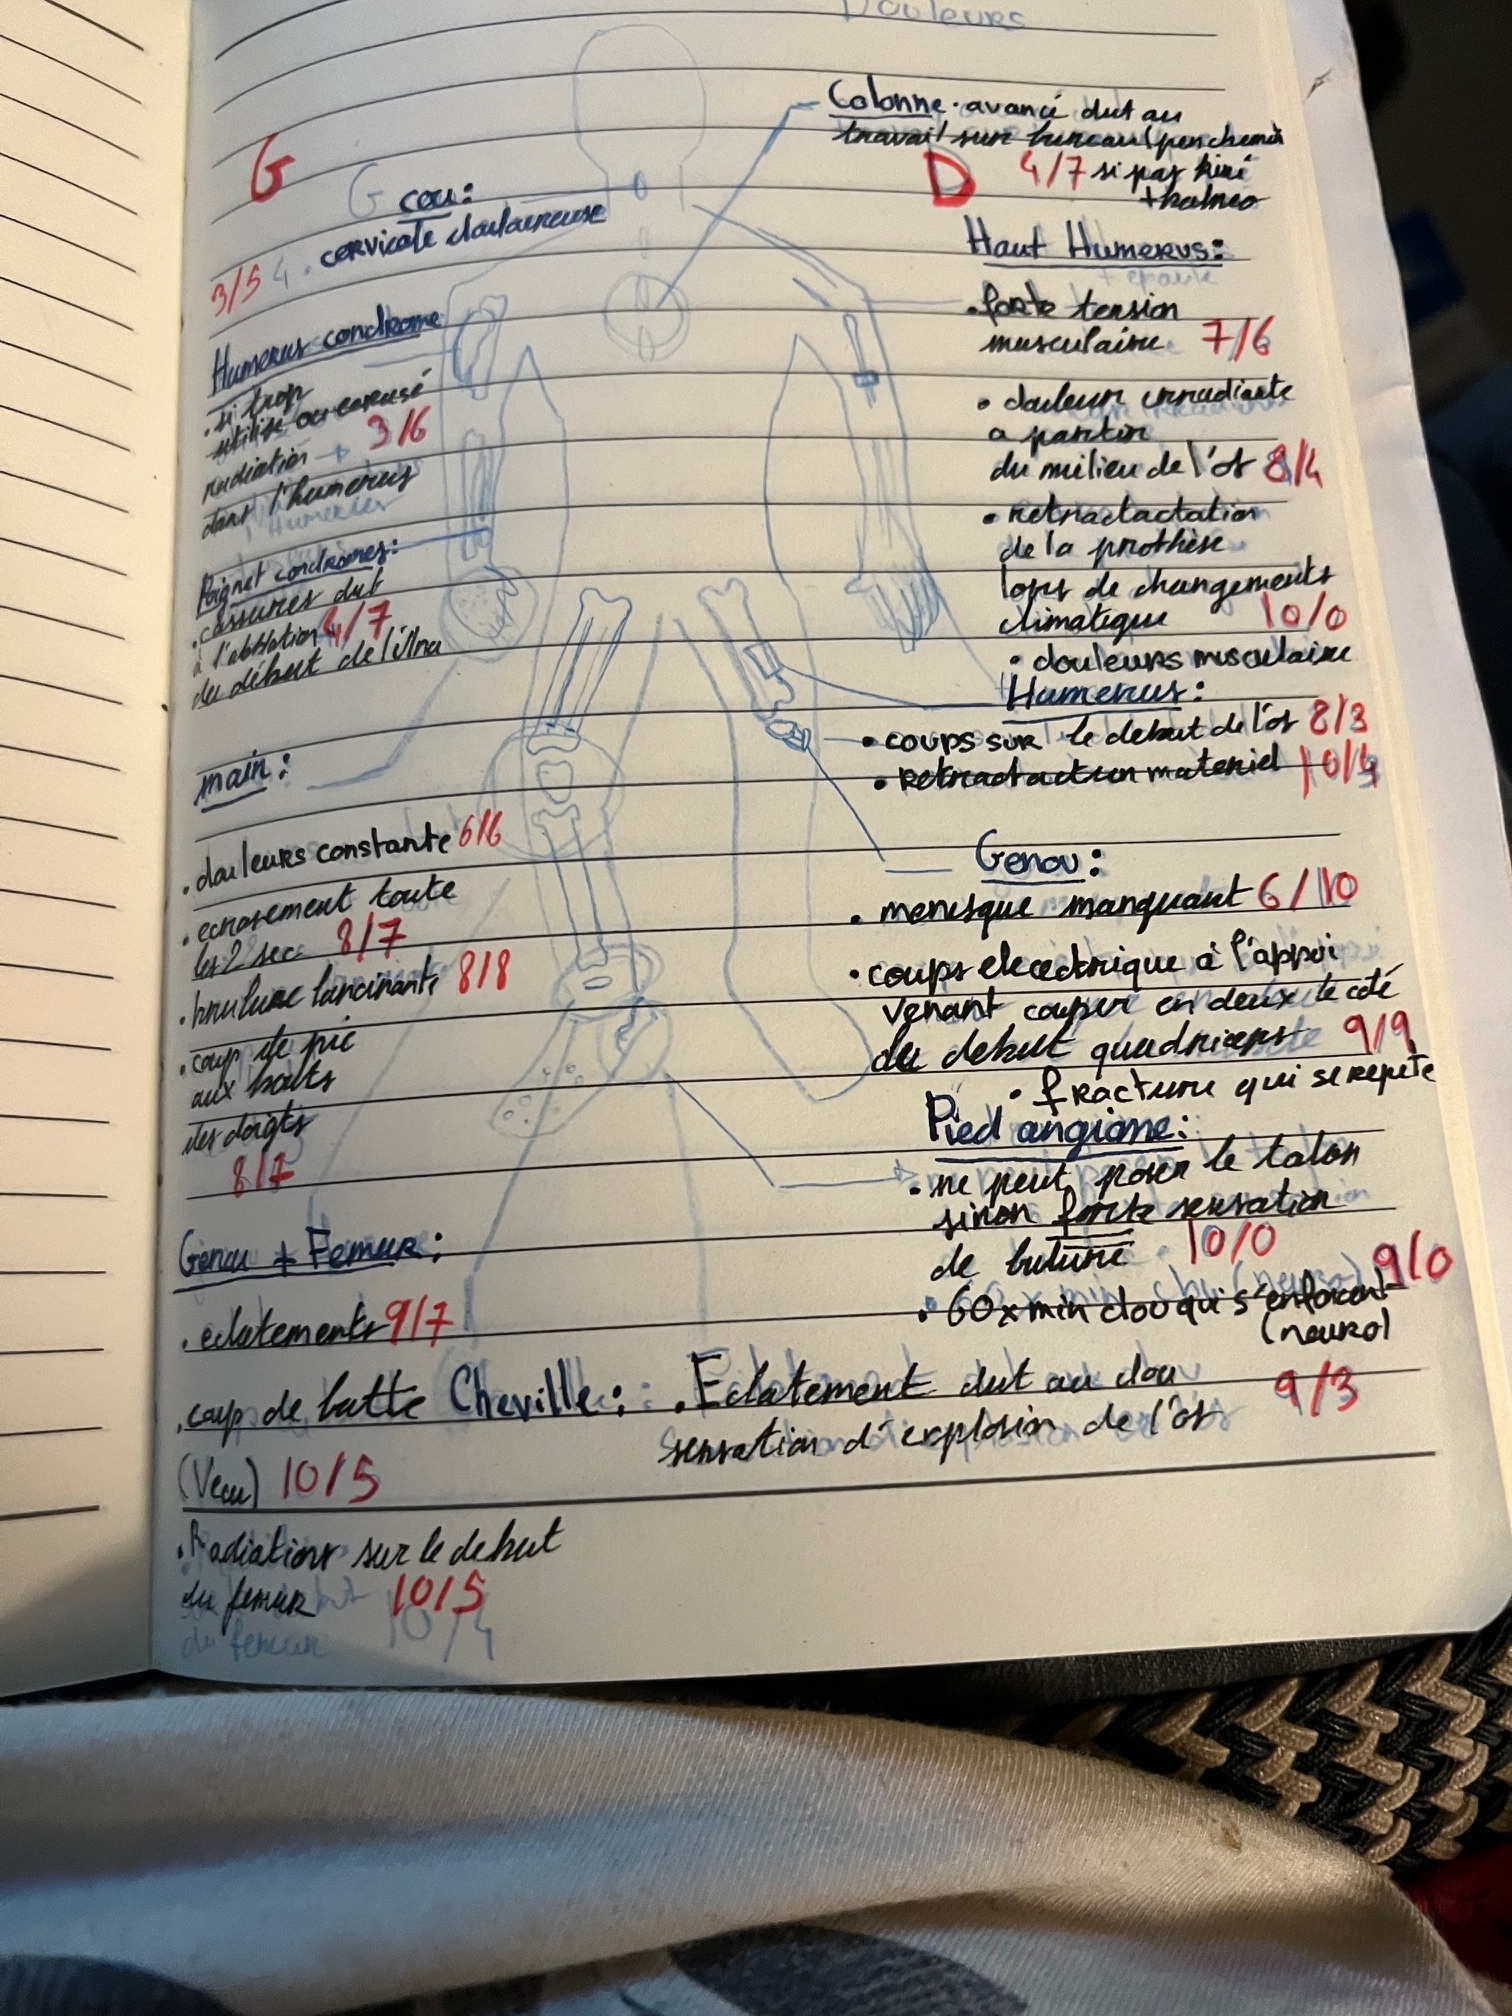 Douleurs
G
G
cou:
. cervicale douloureuse
3/5
Humerus condrome
. si trop
utilisé ou
radiation → 3/6
dans l'humerus
Poignet condromes:
. cassures dut
à l'ablation 4/7
du début de l'Ulna
main:
. douleurs constante 6/6
. ecrasement toute
les 2 sec 8/7
. brulure lancinante 8/8
. coup de pic
aux bouts
des doigts
8/7
Genou + Femur:
. eclatements 9/7
. coup de batte
(Vecu) 10/5
. Radiations sur le debut
du femur 10/5
du femur
Colonne . avancé dut au
travail sur bureau (penchement
D 4/7 si pas kiné
+ balneo
Haut Humerus:
+ epaule
. forte tension
musculaire 7/6
. douleur irradiante
a partir
du milieu de l'os 8/4
. retractactation
de la prothèse
lors de changements
climatique 10/0
. douleurs musculaire
Humerus:
. coups sur le debut de l'os 8/3
. retractaction materiel 10/4
Genou:
. menisque manquant 6/10
. coups elecectrique à l'appui
venant couper en deux le coté
du debut quadriceps 9/9
. fracture qui se repete
Pied angiome:
. ne peut poser le talon
sinon forte sensation
de buture 10/0
. 60 x min clou qui s'enfoncent 9/0
(neuro)
Cheville: . Eclatement dut au clou
sensation d'explosion de l'os 9/3